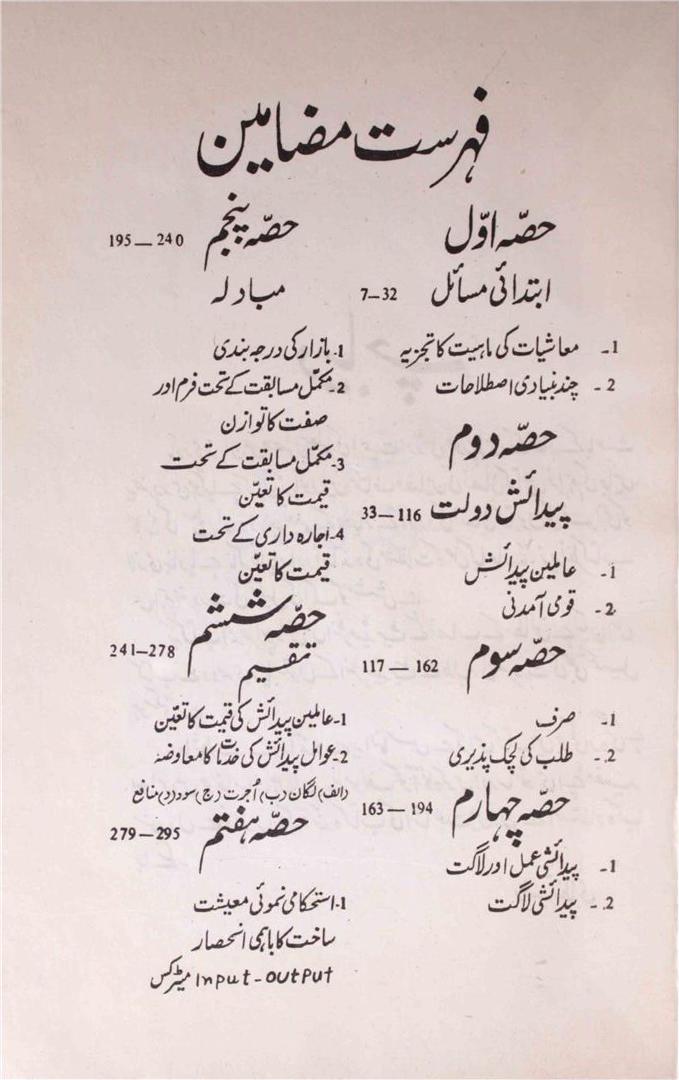 فہرست مضامین
حصّہ اوّل
ابتدائی مسائل 7—32
1۔ معاشیات کی ماہیت کا تجزیہ
2۔ چند بنیادی اصطلاحات
حصّہ دوم
پیدائش دولت 33—116
1۔ عاملین پیدائش
2۔ قومی آمدنی
حصّہ سوم 117—162
1۔ صرف
2۔ طلب کی لچک پذیری
حصّہ چہارم 163—194
1۔ پیدائشی عمل اور لاگت
2۔ پیدائشی لاگت
حصّہ پنجم 195—240
مبادلہ
1۔ بازار کی درجہ بندی
2۔ مکمّل مسابقت کے تحت فرم اور
صفت کا توازن
3۔ مکمّل مسابقت کے تحت
قیمت کا تعیّن
4۔ اجارہ داری کے تحت
قیمت کا تعیّن
حصّہ ششم 241—278
تقسیم
1۔ عاملین پیدائش کی قیمت کا تعیّن
2۔ عوامل پیدائش کی خدمات کا معاوضہ
(الف) لگان (ب) اُجرت (ج) سود (د) منافع
حصّہ ہفتم 279—295
1۔ استحکامی نموئی معیشت
ساخت کا باہمی انحصار
Input-output میٹرکس